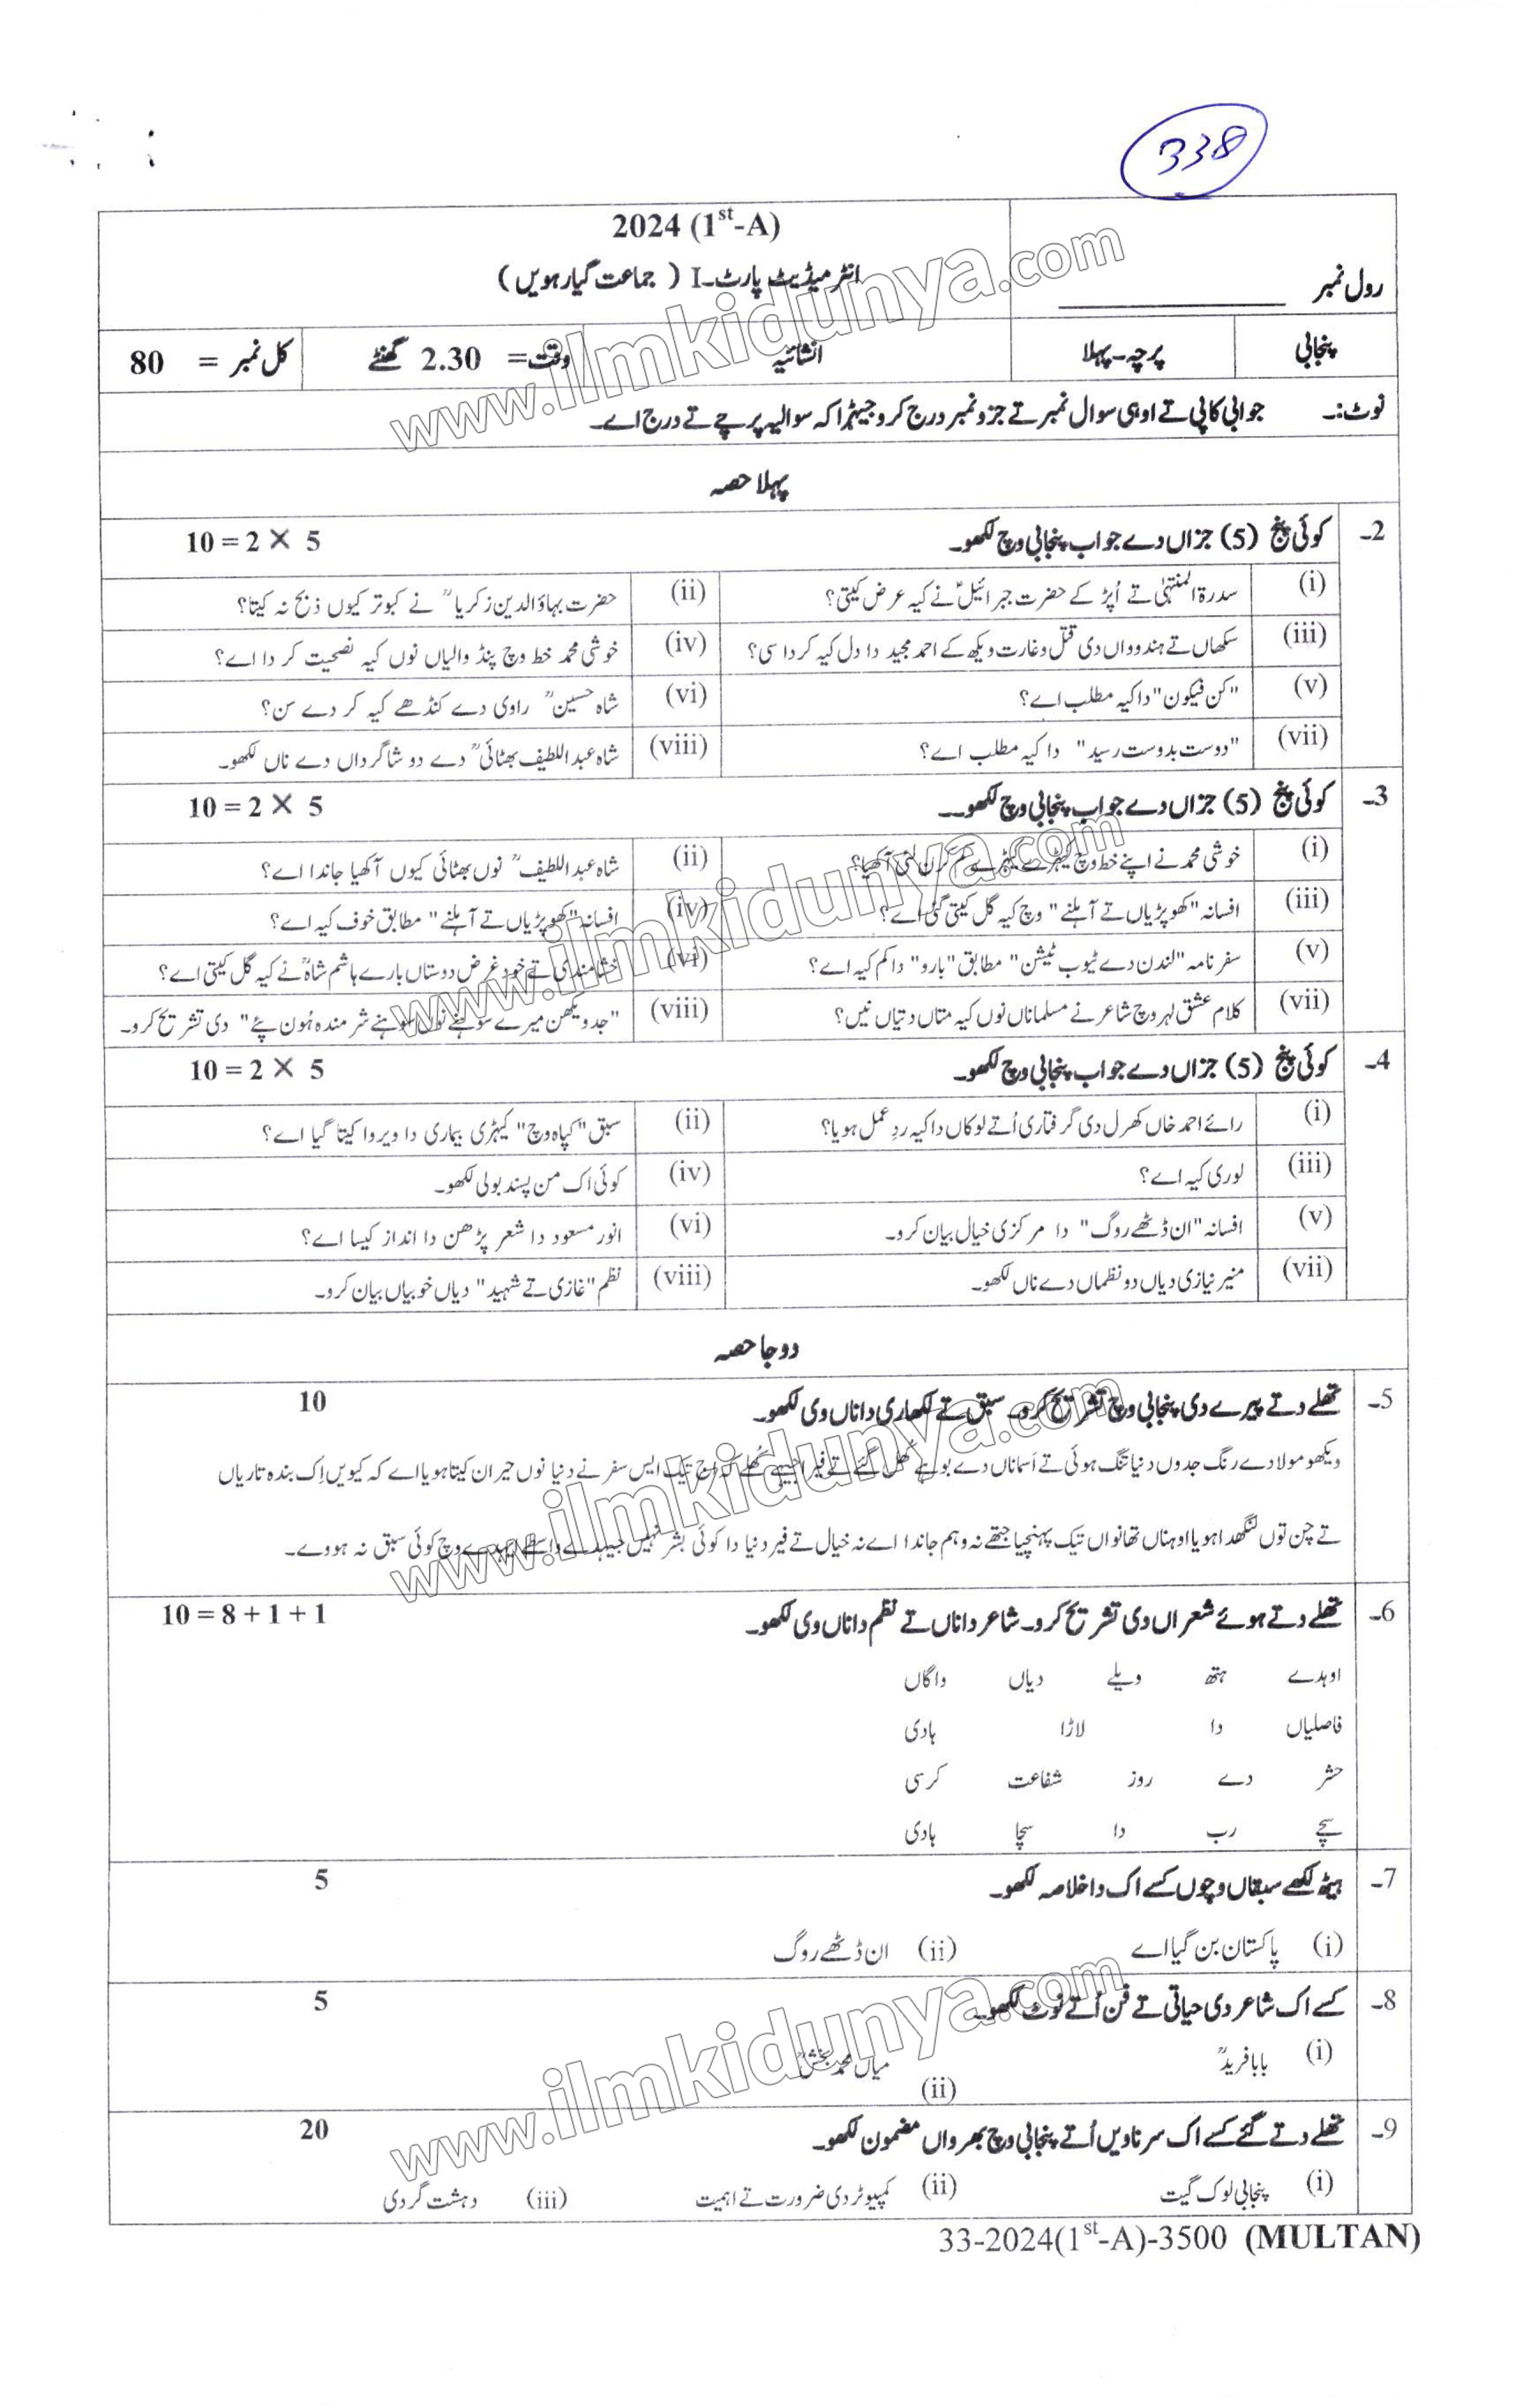 338
2024 (1st-A)
رول نمبر ____________
انٹر میڈیٹ پارٹ-I ( جماعت گیارہویں )
پنجابی پرچہ-پہلا انشائیہ وقت= 2.30 گھنٹے کل نمبر = 80
نوٹ:۔ جوابی کاپی تے اوہی سوال نمبر تے جزو نمبر درج کرو جیہڑا کہ سوالیہ پرچے تے درج اے۔
پہلا حصہ
2۔ کوئی پنج (5) جزاں دے جواب پنجابی وچ لکھو۔ 10 = 2 × 5
(i) سدرۃ المنتہیٰ تے اُپڑ کے حضرت جبرائیلؑ نے کیہ عرض کیتی؟ (ii) حضرت بہاؤالدین زکریاؒ نے کبوتر کیوں ذبح نہ کیتا؟
(iii) سکھاں تے ہندوواں دی قتل و غارت ویکھ کے احمد مجید دا دل کیہ کردا سی؟ (iv) خوشی محمد خط وچ پنڈ والیاں نوں کیہ نصحیت کر دا اے؟
(v) "کن فیکون" دا کیہ مطلب اے؟ (vi) شاہ حسینؒ راوی دے کنڈھے کیہ کر دے سن؟
(vii) "دوست بدوست رسید" دا کیہ مطلب اے؟ (viii) شاہ عبداللطیف بھٹائیؒ دے دو شاگرداں دے ناں لکھو۔
3۔ کوئی پنج (5) جزاں دے جواب پنجابی وچ لکھو۔ 10 = 2 × 5
(i) خوشی محمد نے اپنے خط وچ کیہڑے کیہڑے کم کرن لئی آکھیا؟ (ii) شاہ عبداللطیفؒ نوں بھٹائی کیوں آکھیا جاندا اے؟
(iii) افسانہ "کھوپڑیاں تے آہلنے" وچ کیہ گل کیتی گئی اے؟ (iv) افسانہ "کھوپڑیاں تے آہلنے" مطابق خوف کیہ اے؟
(v) سفرنامہ "لندن دے ٹیوب ٹیشن" مطابق "بارو" دا کم کیہ اے؟ (vi) خشامندی تے خود غرض دوستاں بارے ہاشم شاہؒ نے کیہ گل کیتی اے؟
(vii) کلام عشق لہر وچ شاعر نے مسلماناں نوں کیہ متاں دتیاں نیں؟ (viii) "جد ویکھن میرے سوہنے نوں سوہنے شرمندہ ہُون پئے" دی تشریح کرو۔
4۔ کوئی پنج (5) جزاں دے جواب پنجابی وچ لکھو۔ 10 = 2 × 5
(i) رائے احمد خاں کھرل دی گرفتاری اُتے لوکاں دا کیہ ردِ عمل ہویا؟ (ii) سبق "کپاہ وچ" کیہڑی بیماری دا ویروا کیتا گیا اے؟
(iii) لوری کیہ اے؟ (iv) کوئی اک من پسند بولی لکھو۔
(v) افسانہ "ان ڈٹھے روگ" دا مرکزی خیال بیان کرو۔ (vi) انور مسعود دا شعر پڑھن دا انداز کیسا اے؟
(vii) منیر نیازی دیاں دو نظماں دے ناں لکھو۔ (viii) نظم "غازی تے شہید" دیاں خوبیاں بیان کرو۔
دوجا حصہ
5۔ تھلے دتے پیرے دی پنجابی وچ تشریح کرو۔ سبق تے لکھاری دا ناں وی لکھو۔ 10
ویکھو مولا دے رنگ جدوں دنیا تنگ ہوئی تے اَسماناں دے بوہے کُھل گئے تے فیر اجیہے کُھلے کہ اَج تیک ایس سفر نے دنیا نوں حیران کیتا ہویا اے کہ کیویں اِک بندہ تاریاں
تے چن توں لنگھدا ہویا اوہناں تھانواں تیک پہنچیا جتھے نہ وہم جاندا اے نہ خیال تے فیر دنیا دا کوئی بشر نہیں جیہدے واسطے ایہدے وچ کوئی سبق نہ ہووے۔
6۔ تھلے دتے ہوئے شعراں دی تشریح کرو۔ شاعر دا ناں تے نظم دا ناں وی لکھو۔ 10 = 8 + 1 + 1
اوہدے ہتھ ویلے دیاں واگاں
فاصلیاں دا لاڑا ہادی
حشر دے روز شفاعت کرسی
سچے رب دا سچا ہادی
7۔ ہیٹھ لکھے سبقاں وچوں کسے اک دا خلاصہ لکھو۔ 5
(i) پاکستان بن گیا اے (ii) ان ڈٹھے روگ
8۔ کسے اک شاعر دی حیاتی تے فن اُتے نوٹ لکھو۔ 5
(i) بابا فریدؒ (ii) میاں محمد بخشؒ
9۔ تھلے دتے گئے کسے اک سرناویں اُتے پنجابی وچ بھرواں مضمون لکھو۔ 20
(i) پنجابی لوک گیت (ii) کمپیوٹر دی ضرورت تے اہمیت (iii) دہشت گردی
33-2024(1st-A)-3500 (MULTAN)
www.ilmkidunya.com
www.ilmkidunya.com
www.ilmkidunya.com
www.ilmkidunya.com